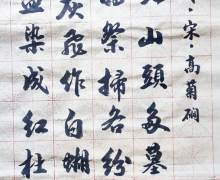 ·宋·高菊磵
北山頭多墓
明祭掃各紛
灰飛作白蝴
血染成紅杜